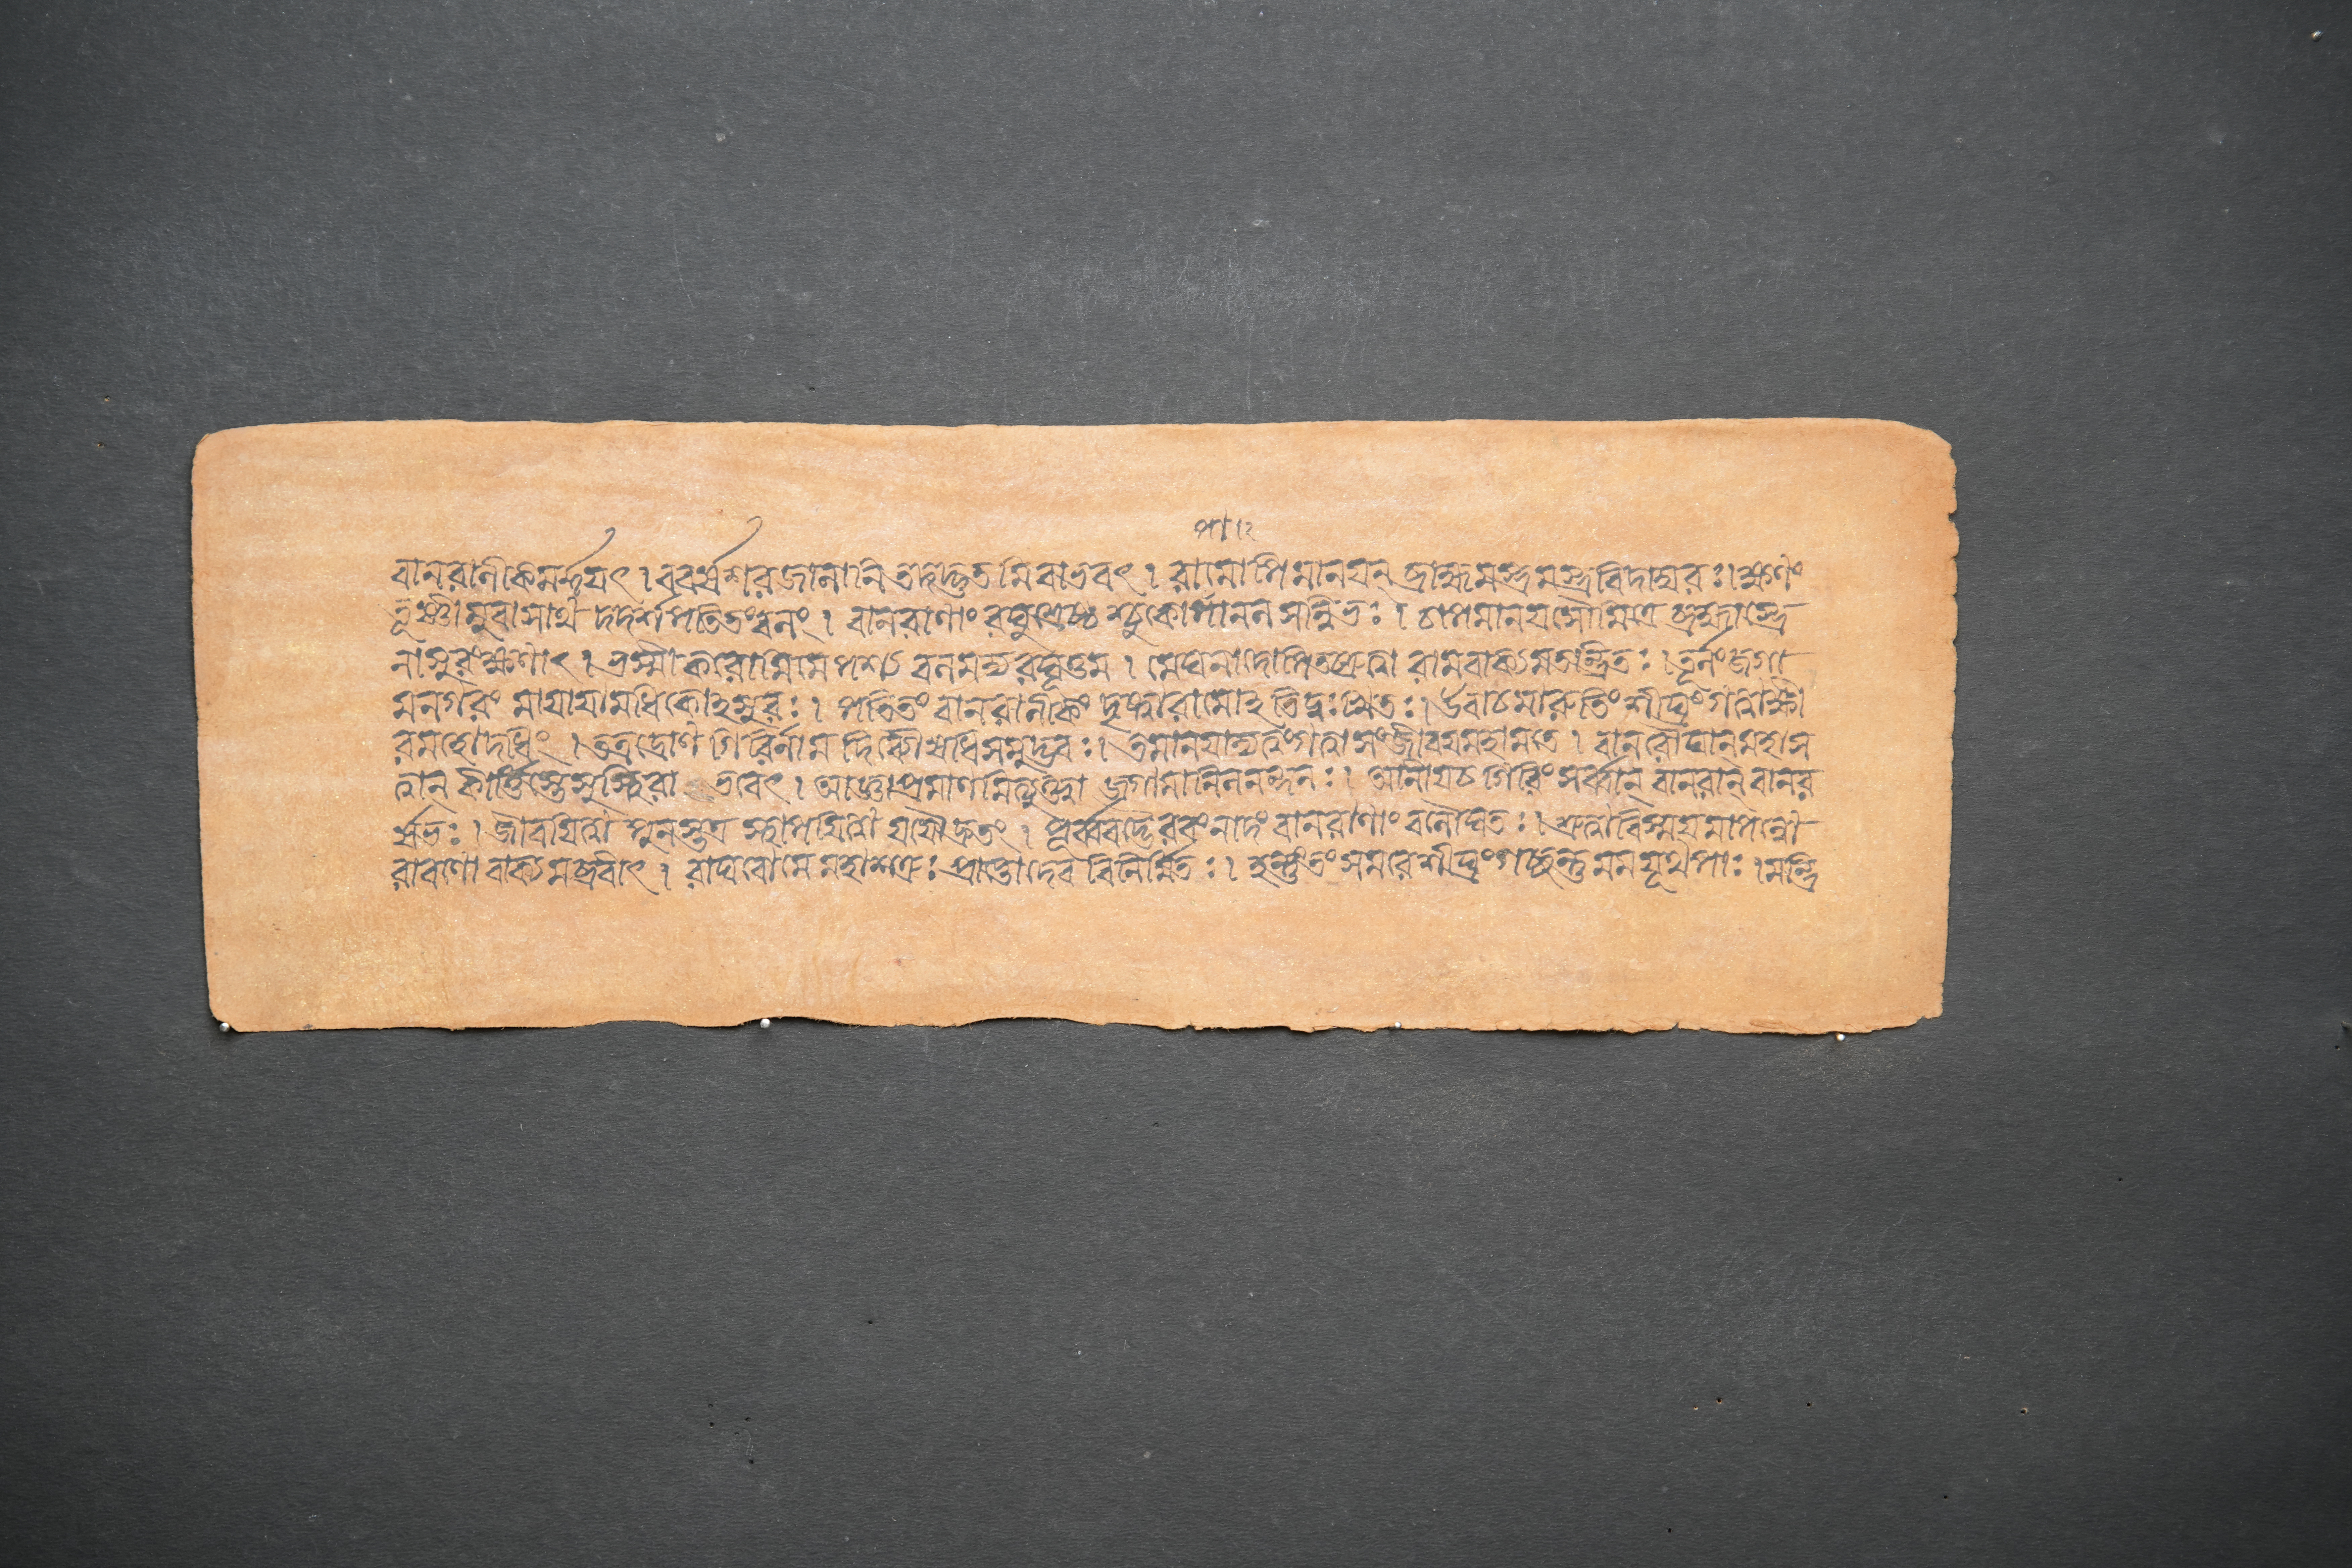 বানরানীকমর্দ্দযৎ । ববর্ষ শরজালানি তদদ্ভুতমিবাভবৎ । রামোপিমানযন্ ব্রাহ্মমস্ত্রমস্ত্রবিদাম্বরঃ । ক্ষণং
তূষ্ণীমুবাসাথ দদর্শ পতিতং বলং । বানরাণাং রঘুশ্রেষ্ঠ শ্চুকোপানল সন্নিভঃ । চাপমানয সৌমিত্রে ব্রহ্মাস্ত্রে
নাসুরং ক্ষণাৎ । ভস্মীকরোমি মে পশ্য বলমদ্য রঘূত্তম । মেঘনাদোপি তচ্ছ্রুত্বা রামবাক্যমতন্দ্রিতঃ । তূর্ণং জগা
ম নগরং মাযাযামধিকোঽসুরঃ । পতিতং বানরানীকং দৃষ্ট্বা রামোঽতিদুঃখিতঃ । উবাচ মারুতিং শীঘ্রং গত্বা ক্ষী
রমহোদধিং । তত্র দ্রোণ গিরির্নাম দিব্যৌষধি সমুদ্ভবঃ । তমানযাদ্য ত্বং গত্বা সংজীবয মহামতে । বানরৌঘান্ মহাস
ত্বান কীর্ত্তিস্তে সুস্থিরা ভবেৎ । আজ্ঞা প্রমাণমিত্যুক্ত্বা জগামানিলনন্দনঃ । আনীয চ গিরিং সর্ব্বান্ বানরান্ বানর
র্ষভঃ । জীবযিত্বা পুনস্তত্র স্থাপযিত্বা যযৌ দ্রুতং । পূর্ব্ববদ্ভৈরবং নাদং বানরাণাং বলৌঘতঃ । শ্রুত্বা বিস্ময মাপন্নো
রাবণো বাক্যমব্রবীৎ । রাঘবো মে মহাশত্রুঃ প্রাপ্তো দেব বিনির্ম্মিতঃ । হন্তুং তং সমরে শীঘ্রং গচ্ছন্তু মম যূথপাঃ । মন্ত্রি